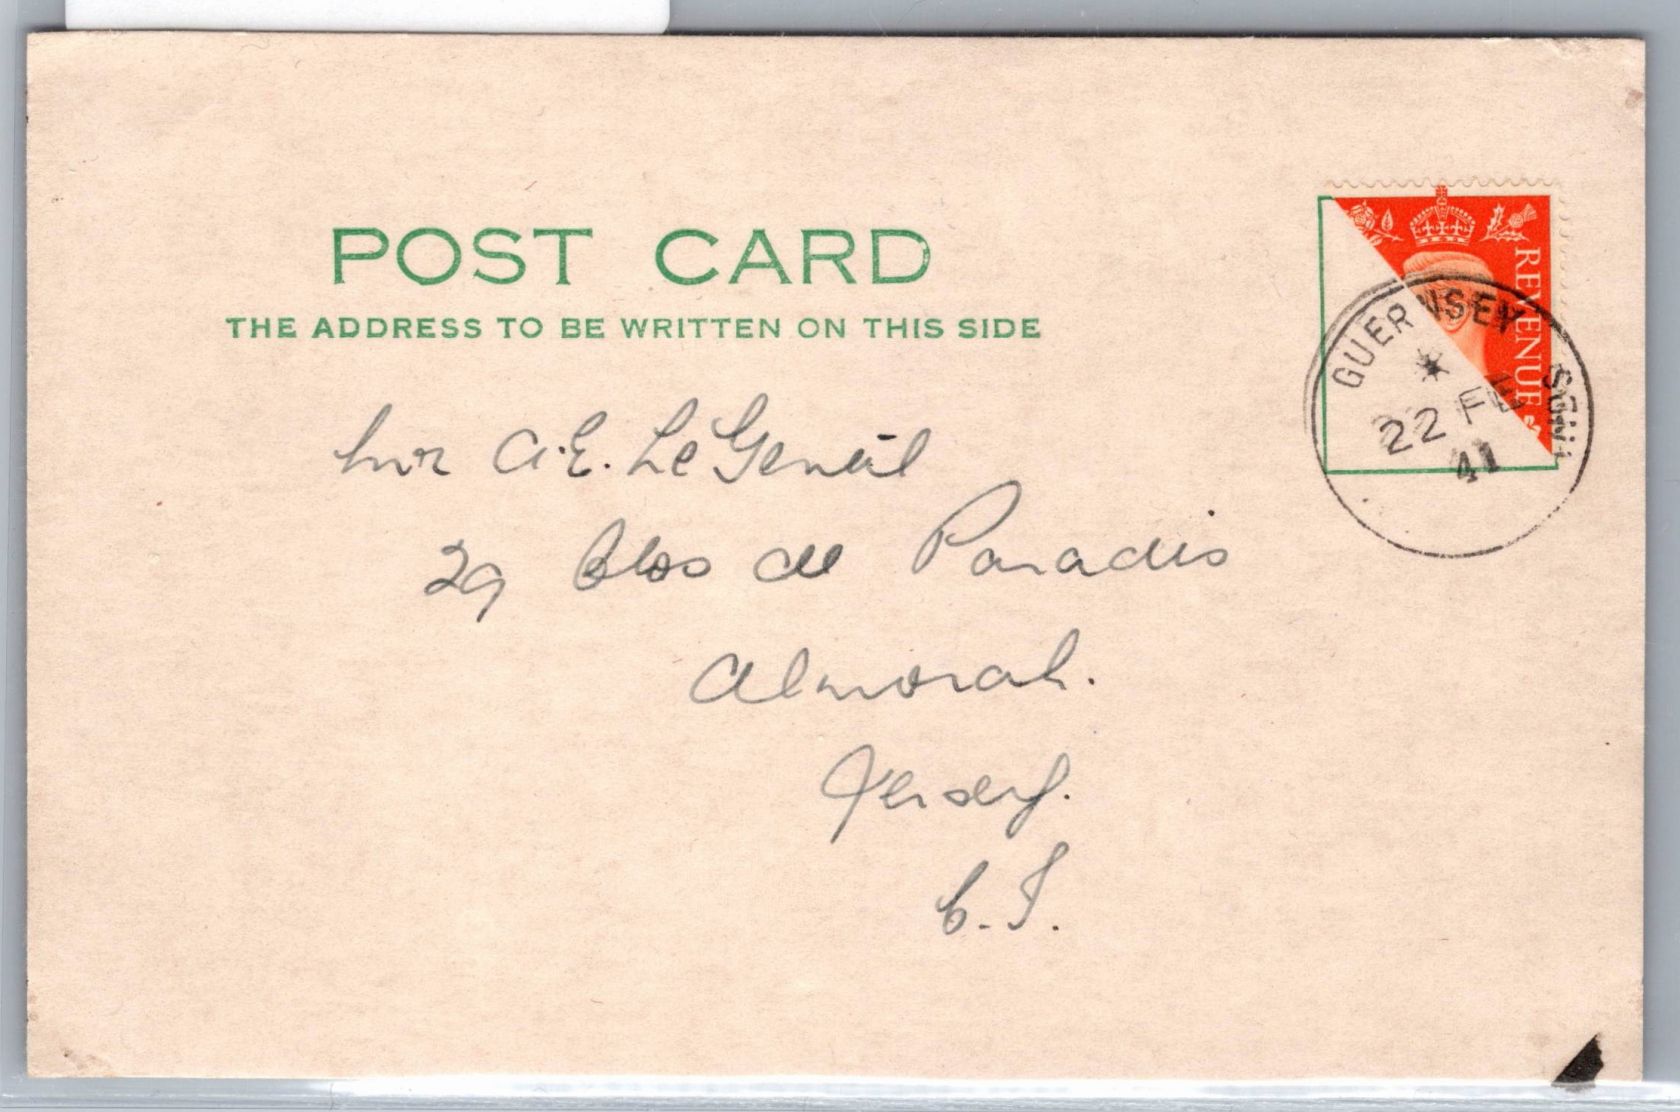 POST CARD
THE ADDRESS TO BE WRITTEN ON THIS SIDE
REVENUE
GUERNSEY
22 FE
41
Mr A.E. Le Gentil
29 Clos de Paradis
Almorah.
Jersey.
C.I.